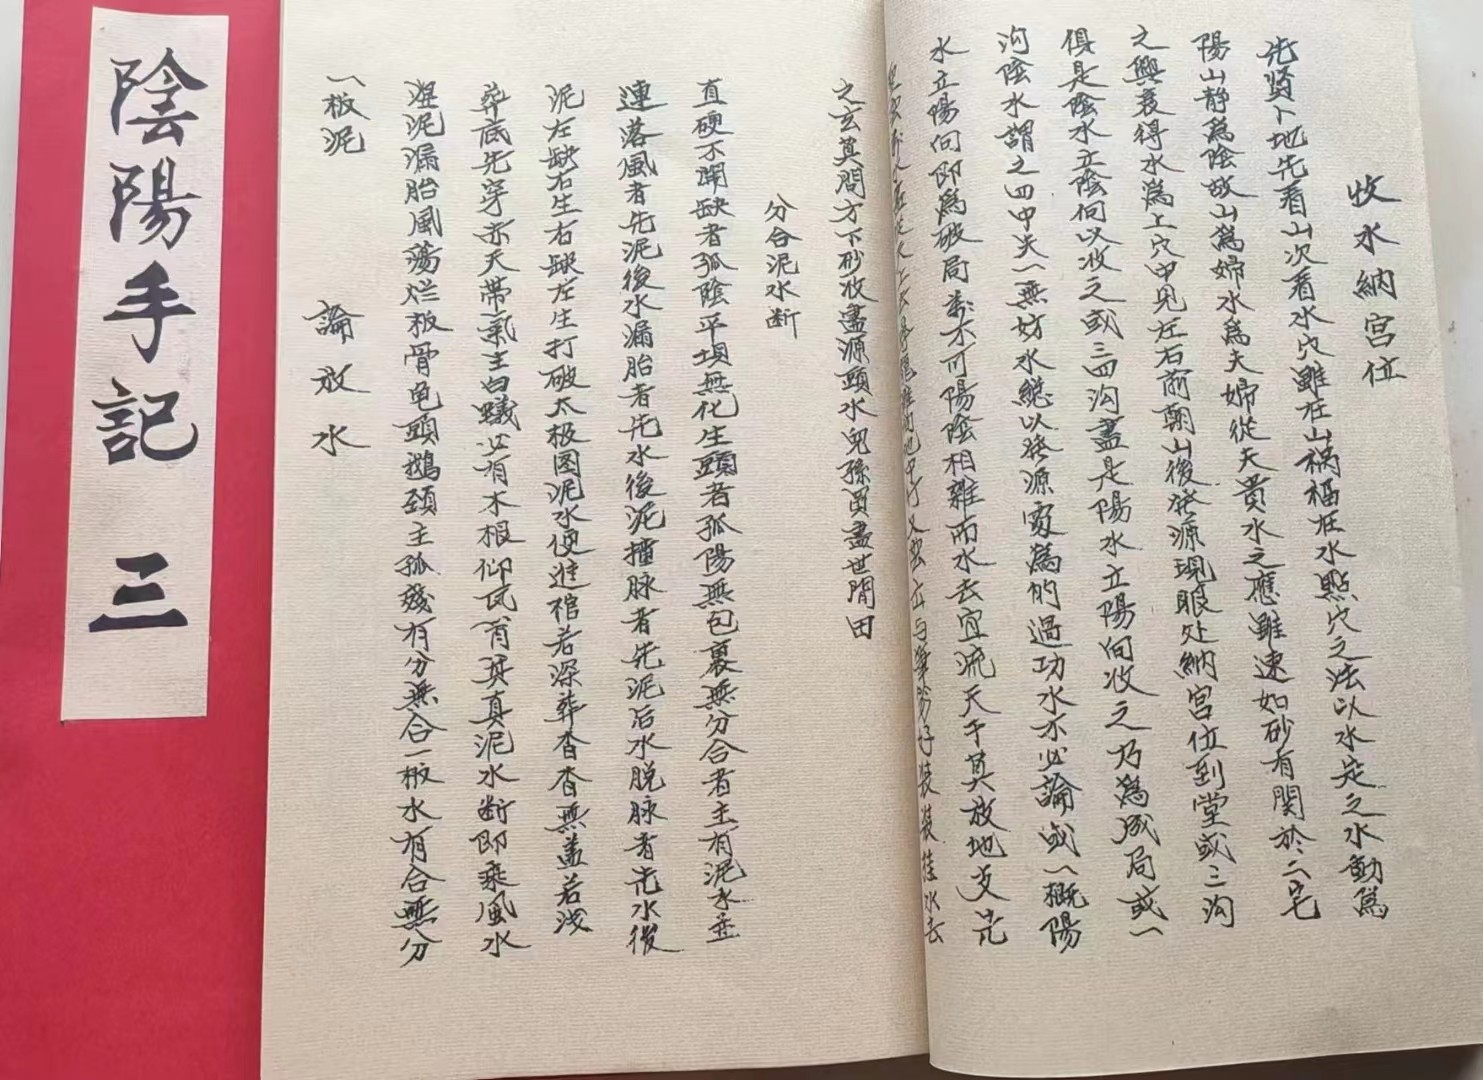 陰陽手記 三
收水納宮位
先贤卜地先看山次看水穴雖在山禍福在水點穴之法以水定之水動爲
陽山静爲陰故山爲婦水爲夫婦從夫貴水之應雖速如砂有関於二宅
之興衰得水爲上穴中見左右前朝山後發源現眼处納宮位到堂或二沟
俱是陰水立陰向以收之或三四沟盡是陽水立陽向收之乃爲成局或一
沟陰水謂之四中失一無妨水總以發源家爲的過功水不必論或一概陽
水立陽向即爲破局 不可陽陰相雜而水去宜流天干莫放地支
之玄莫問方下砂收盡源頭水兒孫買盡世間田
分合泥水断
直硬不開缺者孤陰平塤無化生頭者孤陽無包裹無分合者主有泥水並
連落風者先泥後水漏胎者先水後泥撞脉者先泥后水脱脉者先水後
泥左缺右生右缺左生打破太极图泥水便進棺若深葬杳杳無盖若浅
葬底先穿亦天帶氣主白蟻必有木根仰瓦 真泥水断即乘風水
湿泥漏胎風蕩烂板骨龟頭鵝頚主孤殘有分無合一板水有合無分
一板泥
論放水